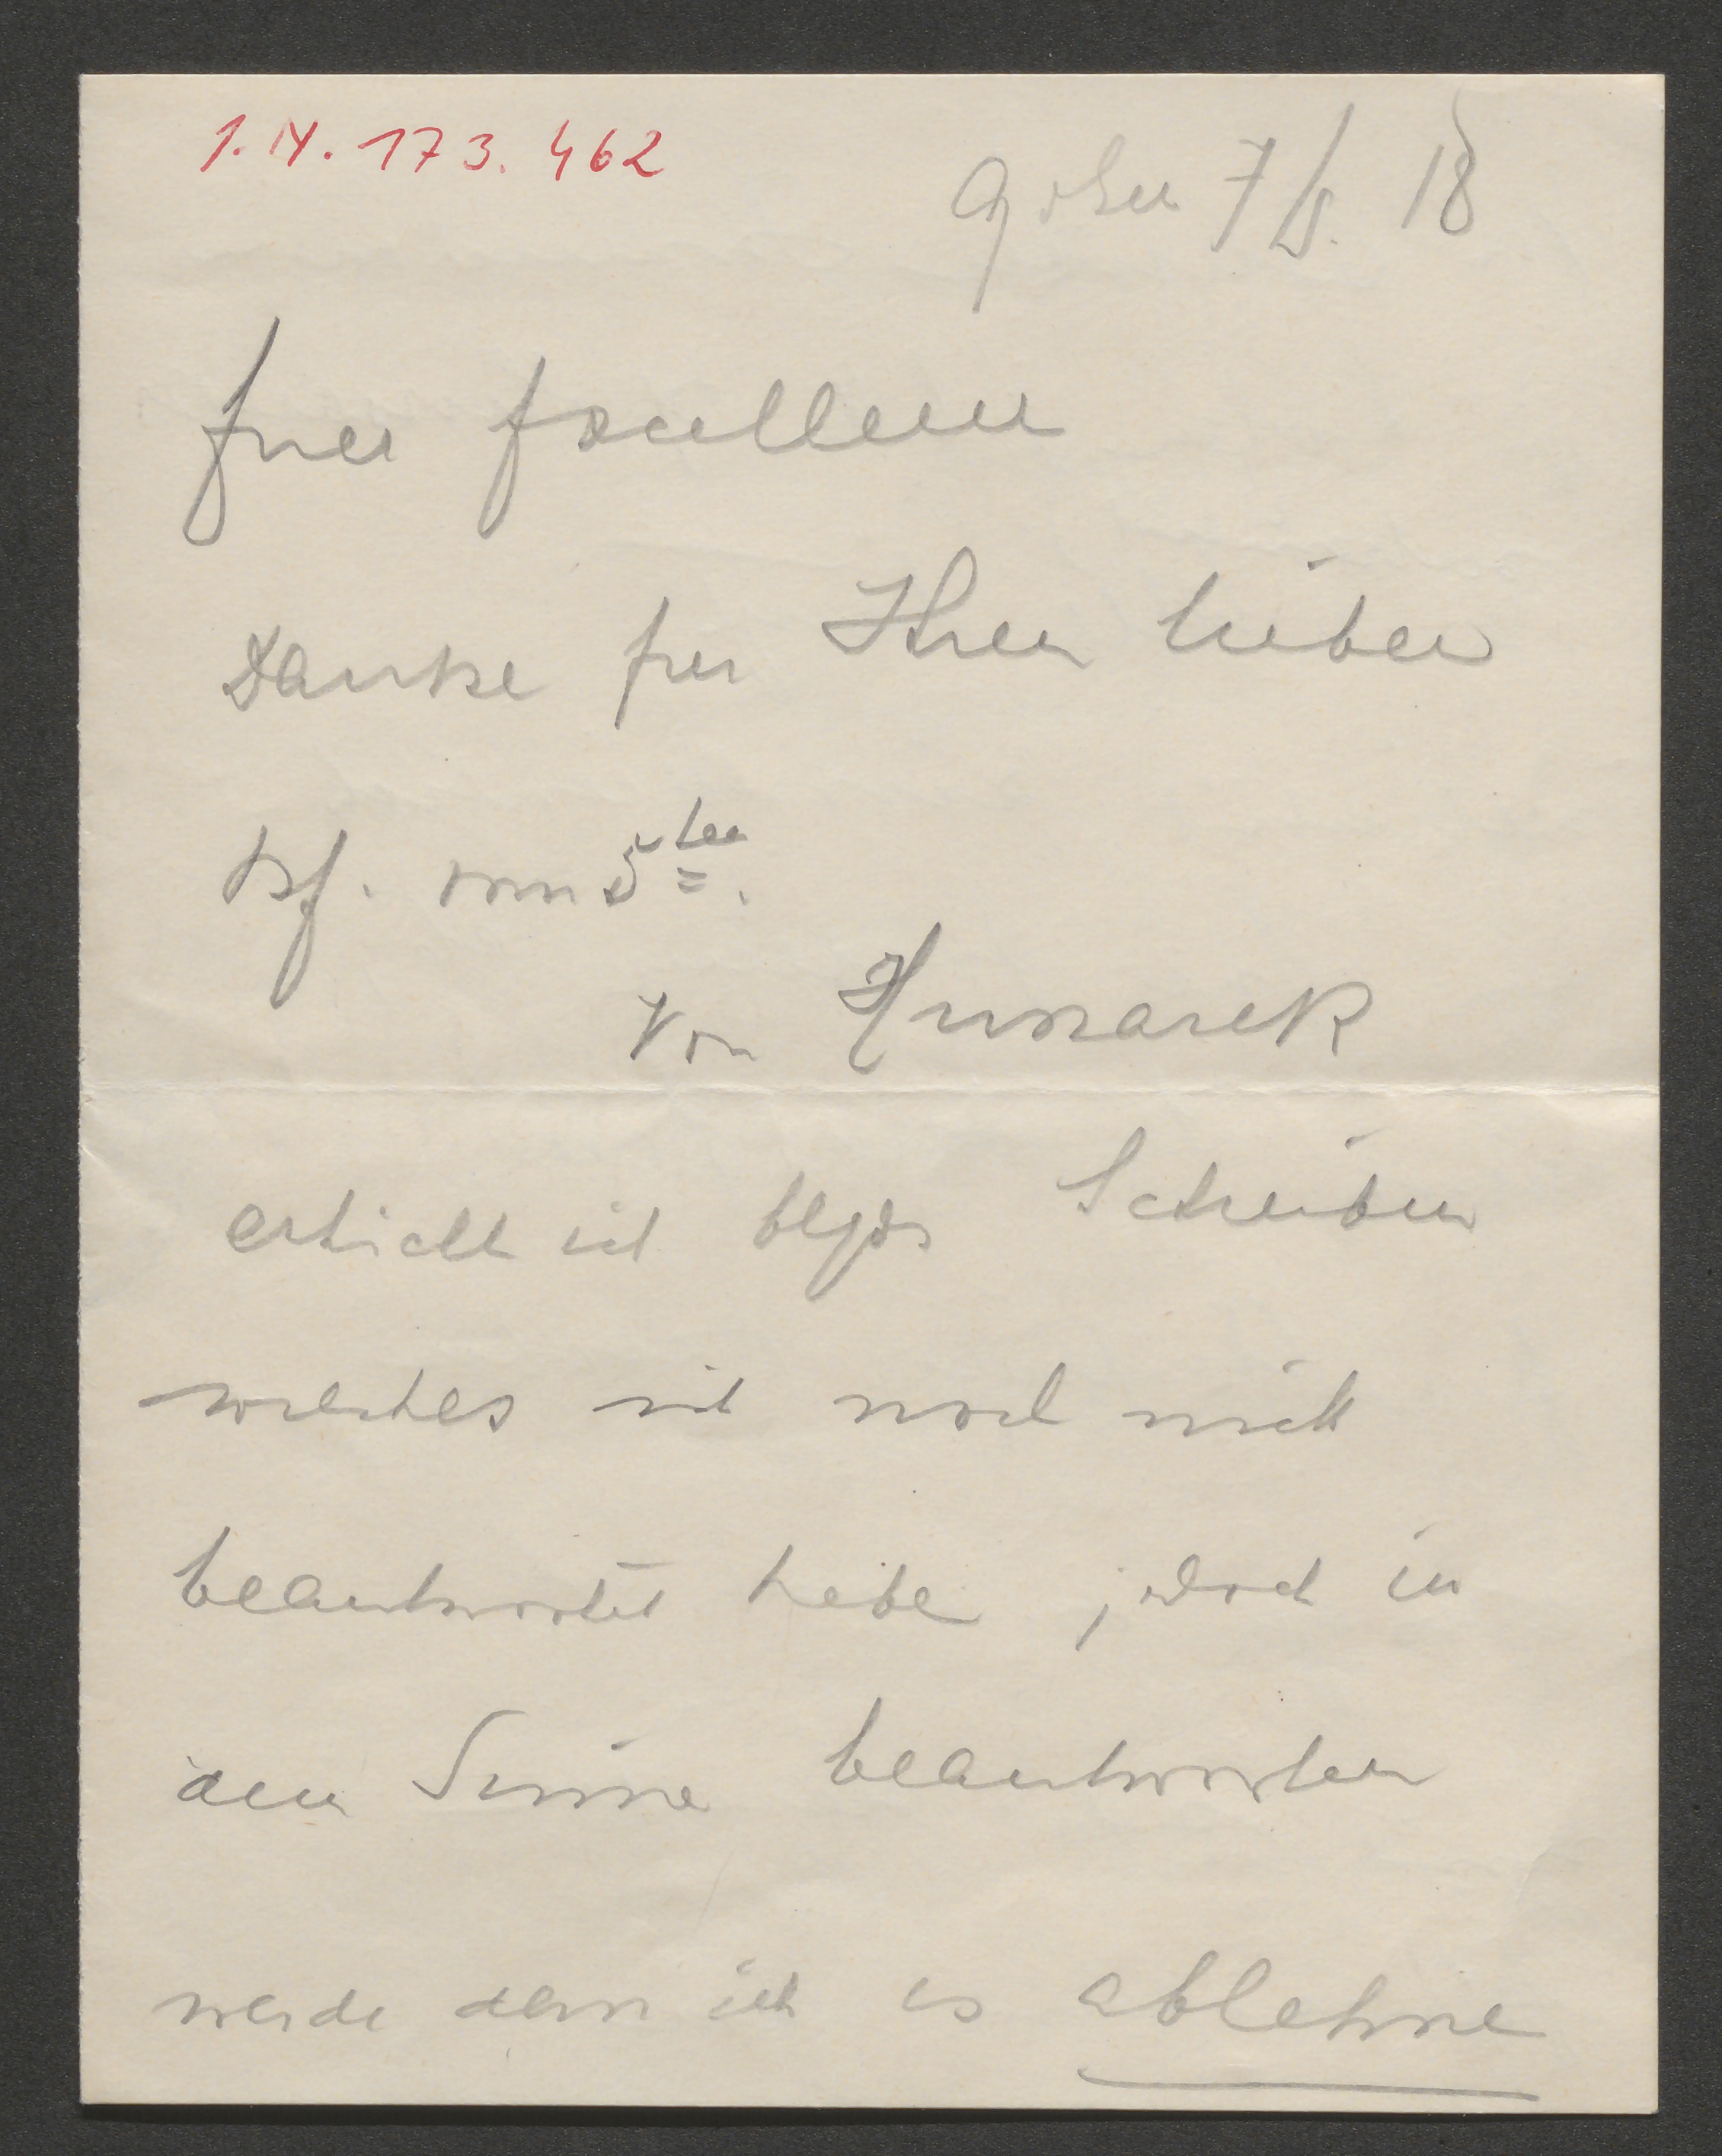 I.N. 173.462
7/8. 18
Euer Excellenz
Danke für Ihren lieben
Bf. vom 5ten.
Von Hussarek
erhielt ich Schreiben
welches ich noch nicht
beantwortet habe, jedoch in
dem Sinne beantworten
werde dass ich es ablehne